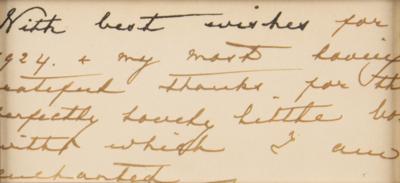 With best wishes for
1924. & my most loving
grateful thanks for th
perfectly lovely little bo
with which I am
enchanted